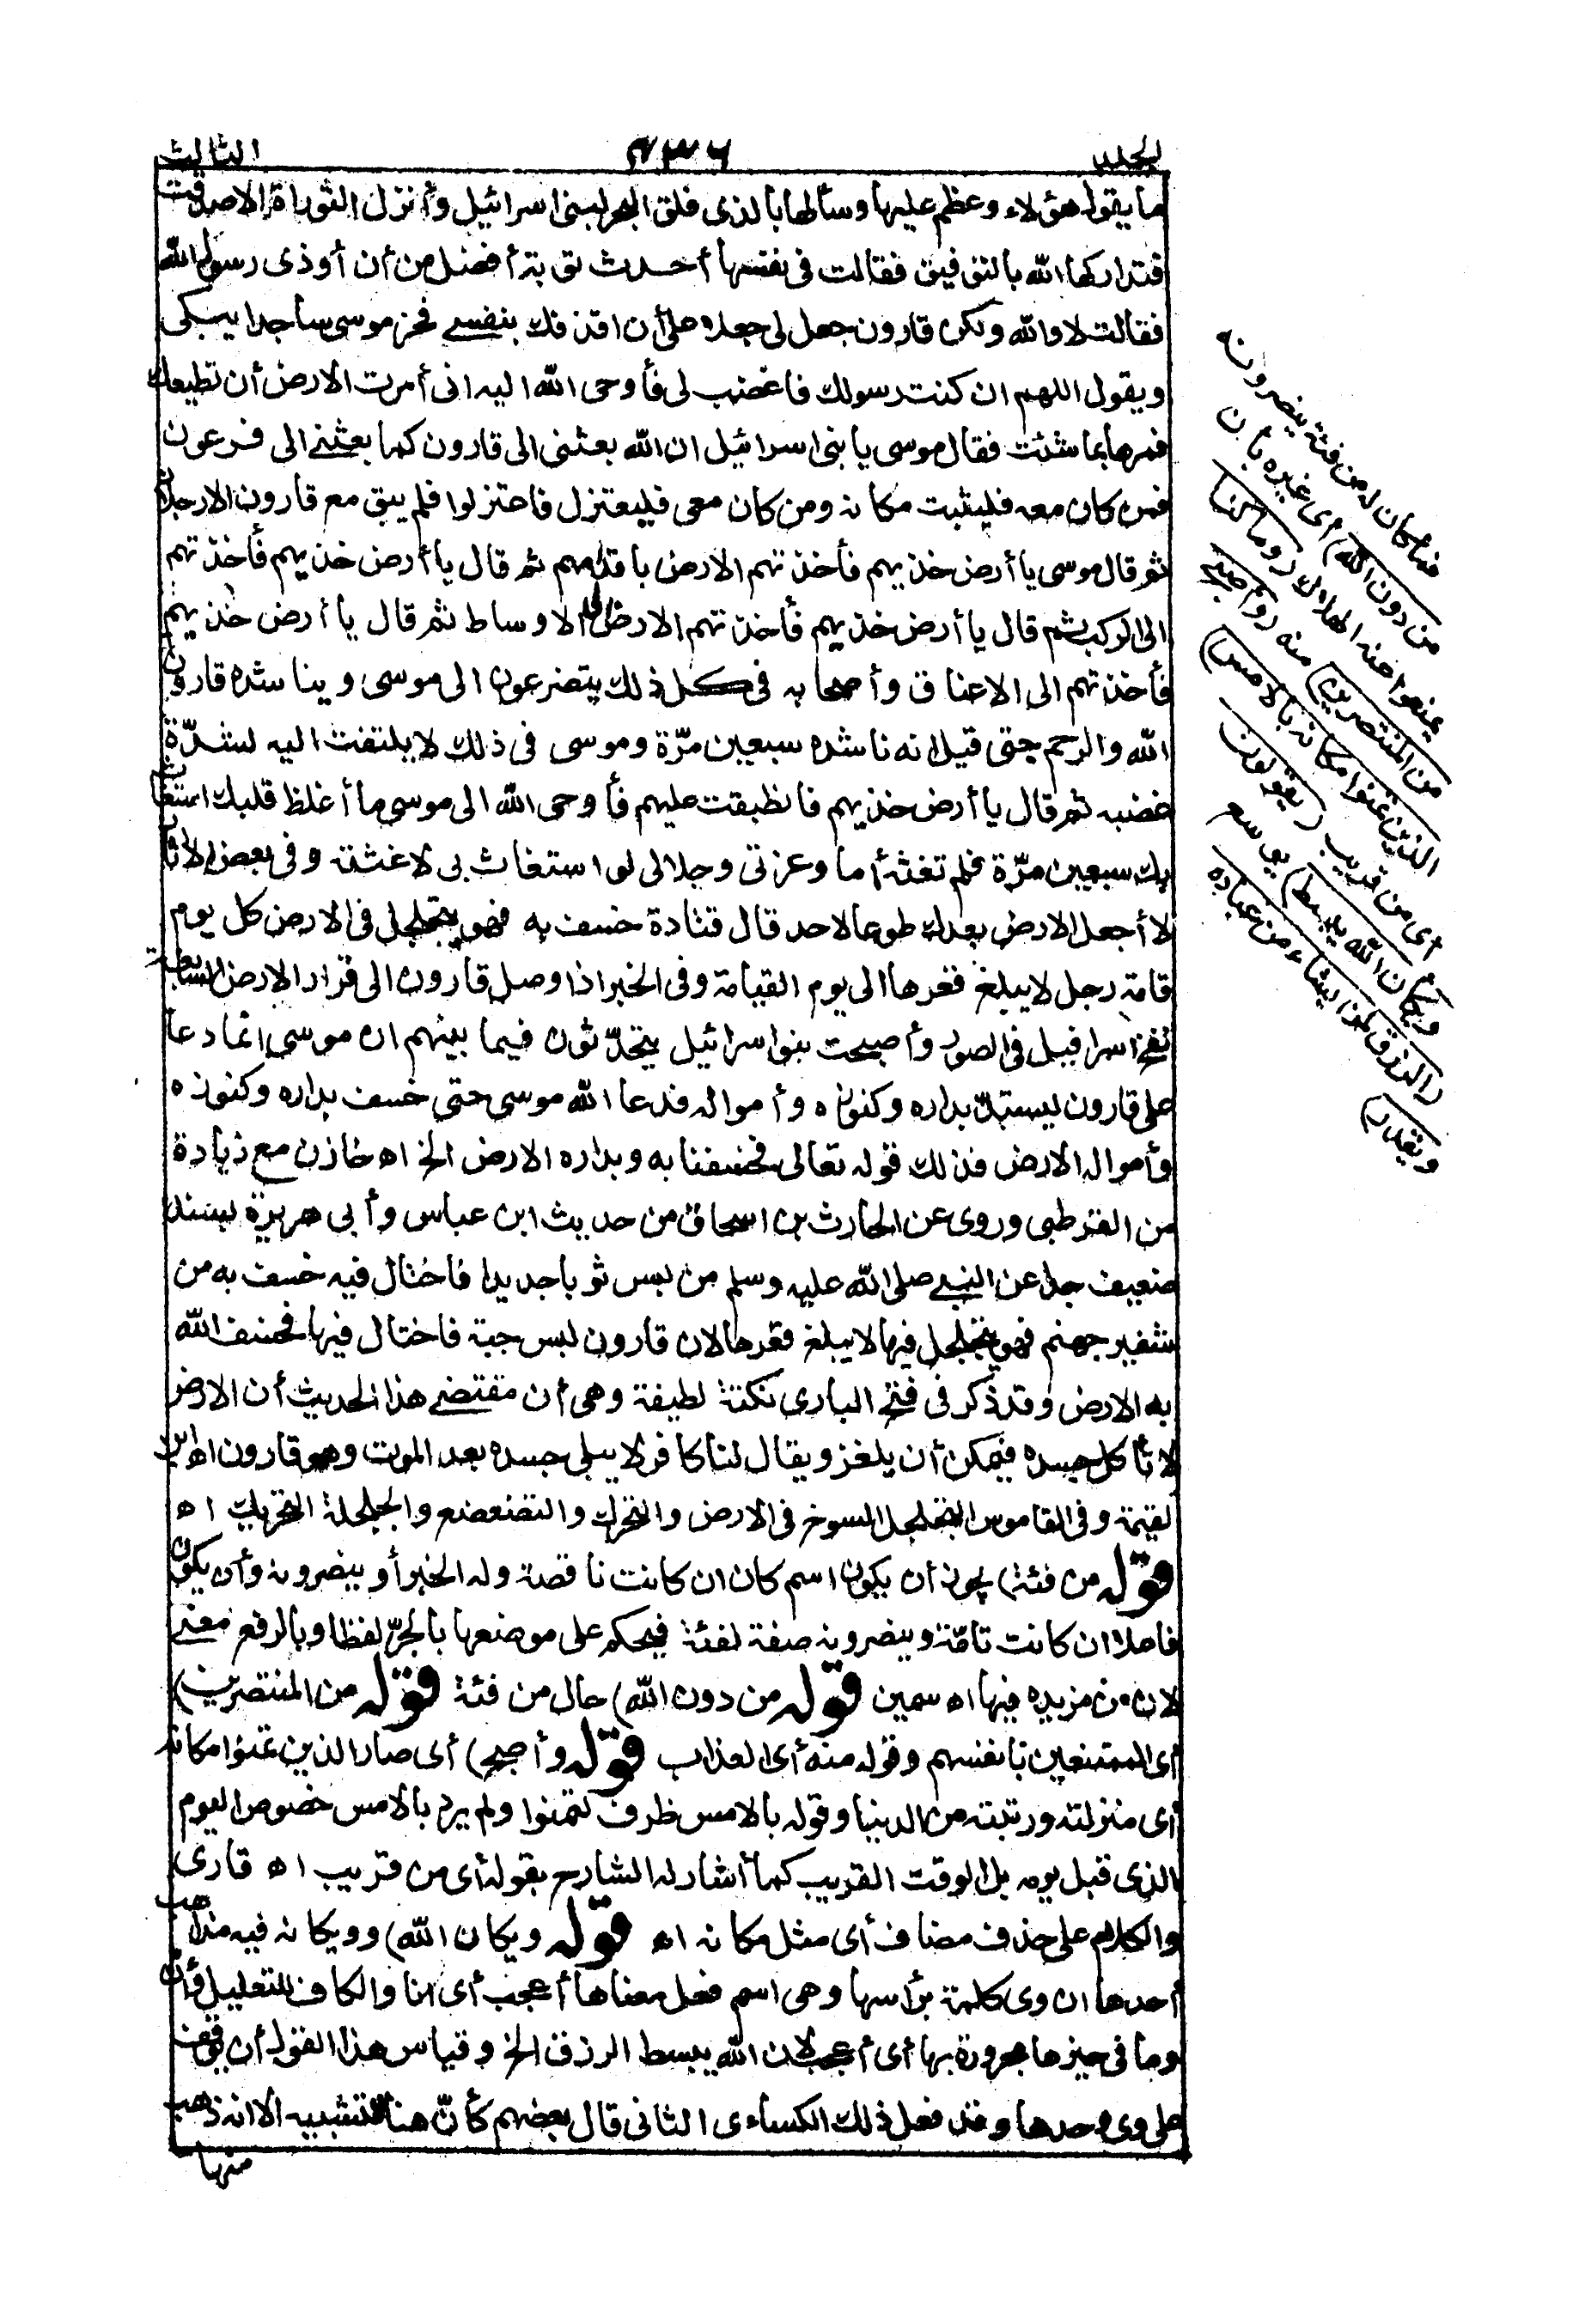 الجلد
٤٣٦
الثالث
ما يقول هؤلاء وعظم عليها وسألها بالذى فلق البحر لبنى اسرائيل وأنزل التوراة الا صدقت
فتداركها الله بالتوفيق فقالت فى نفسها أحدث توبة أفضل من أن أوذى رسول الله
فقالت لا والله ولكن قارون جعل لى جعلا على أن اقذفك بنفسى فخر موسى ساجدا يبكى
ويقول اللهم ان كنت رسولك فاغضب لى فأوحى الله اليه انى أمرت الارض أن تطيعك
فمرها بما شئت فقال موسى يا بنى اسرائيل ان الله بعثنى الى قارون كما بعثنى الى فرعون
فمن كان معه فليثبت مكانه ومن كان معى فليعتزل فاعتزلوا فلم يبق مع قارون الا رجلان
ثم قال موسى يا أرض خذيهم فأخذتهم الارض باقدامهم ثم قال يا أرض خذيهم فأخذتهم
الى الركب ثم قال يا أرض خذيهم فأخذتهم الارض الى الاوساط ثم قال يا أرض خذيهم
فأخذتهم الى الاعناق وأصحابه فى كل ذلك يتضرعون الى موسى ويناشده قارون
الله والرحم حتى قيل انه ناشده سبعين مرّة وموسى فى ذلك لا يلتفت اليه لشدّة
غضبه ثم قال يا أرض خذيهم فانطبقت عليهم فأوحى الله الى موسى ما أغلظ قلبك استغاث
بك سبعين مرّة فلم تغثه أما وعزتى وجلالى لو استغاث بى لاغثته وفى بعض الآثار
لا أجعل الارض بعدك طوعا لاحد قال قتادة خسف به فهو يتجلجل فى الارض كل يوم
قامة رجل لا يبلغ قعرها الى يوم القيامة وفى الخبر اذا وصل قارون الى قرار الارض السابعة
نفخ اسرافيل فى الصور وأصبحت بنوا سرائيل يتحدّثون فيما بينهم ان موسى انما دعا
على قارون ليستبدّ بداره وكنوزه وأمواله فدعا الله موسى حتى خسف بداره وكنوزه
وأمواله الارض فذلك قوله تعالى فخسفنا به وبداره الارض الخ اه خازن مع زيادة
من القرطبى وروى عن الحارث بن اسحاق من حديث ابن عباس وأبى هريرة بسند
ضعيف جدا عن النبى صلى الله عليه وسلم من لبس ثوبا جديدا فاختال فيه خسف به من
شفير جهنم فهو يتجلجل فيها لا يبلغ قعرها لان قارون لبس جبة فاختال فيها فخسف الله
به الارض وقد ذكر فى فتح البارى نكتة لطيفة وهى أن مقتضى هذا الحديث أن الارض
لا تأكل جسده فيمكن أن يلغز ويقال لنا كافر لا يبلى جسده بعد الموت وهو قارون اه ابن
لقيمة وفى القاموس التجلجل السوخ فى الارض والتحرك والتضعضع والجلجلة التحريك اه
قوله من فئة) يجوز أن يكون اسم كان ان كانت ناقصة وله الخبر أو ينصرونه وأن يكون
فاعلا ان كانت تامّة وينصرونه صفة لفئة فيحكم على موضعها بالجرّ لفظا وبالرفع معنى
لان من مزيدة فيها اه سمين قوله من دون الله) حال من فئة قوله من المنتصرين)
أى الممتنعين بانفسهم وقوله منه أى العذاب قوله وأصبح) أى صار الذين تمنوا مكانه
أى منزلته ورتبته من الدنيا وقوله بالامس ظرف لتمنوا ولم يرد بالامس خصوص اليوم
الذى قبل يومه بل الوقت القريب كما أشار له الشارح بقوله أى من قريب اه قارى
والكلام على حذف مضاف أى مثل مكانه اه قوله ويكان الله) وويكانه فيه مذاهب
أحدها ان وى كلمة برأسها وهى اسم فعل معناها أعجب أى انا والكاف للتعليل وأن
وما فى حيزها مجرورة بها أى أعجب لان الله يبسط الرزق الخ وقياس هذا القول أن يوقف
على وى وحدها وقد فعل ذلك الكساءى الثانى قال بعضهم كأنّ هنا للتشبيه الا انه ذهب
منها
فما كان له من فئة ينصرونه
من دون الله) أى غيره بان
يمنعوا عنه الهلاك (وما كان
من المنتصرين) منه (وأصبح
الذين تمنوا مكانه بالامس)
أى من قريب (يقولون
ويكان الله يبسط) يوسع
(الرزق لمن يشاء من عباده
ويقدر)